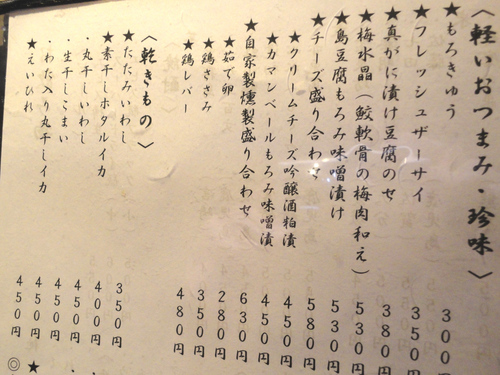 〈軽いおつまみ・珍味〉
★もろきゅう 300円
★フレッシュザーサイ 350円
★真がに漬け豆腐のせ 380円
★梅水晶(鮫軟骨の梅肉和え) 530円
★島豆腐もろみ味噌漬け 530円
★チーズ盛り合わせ 580円
★クリームチーズ吟醸酒粕漬 450円
★カマンベールもろみ味噌漬 450円
★自家製燻製盛り合わせ 630円
★茹で卵 280円
★鶏ささみ 350円
★鶏レバー 480円
〈乾きもの〉
★たたみいわし 350円
★素干しホタルイカ 400円
・丸干しいわし 400円
・生干しこまい 450円
・わた入り丸干しイカ 450円
★えいひれ 450円